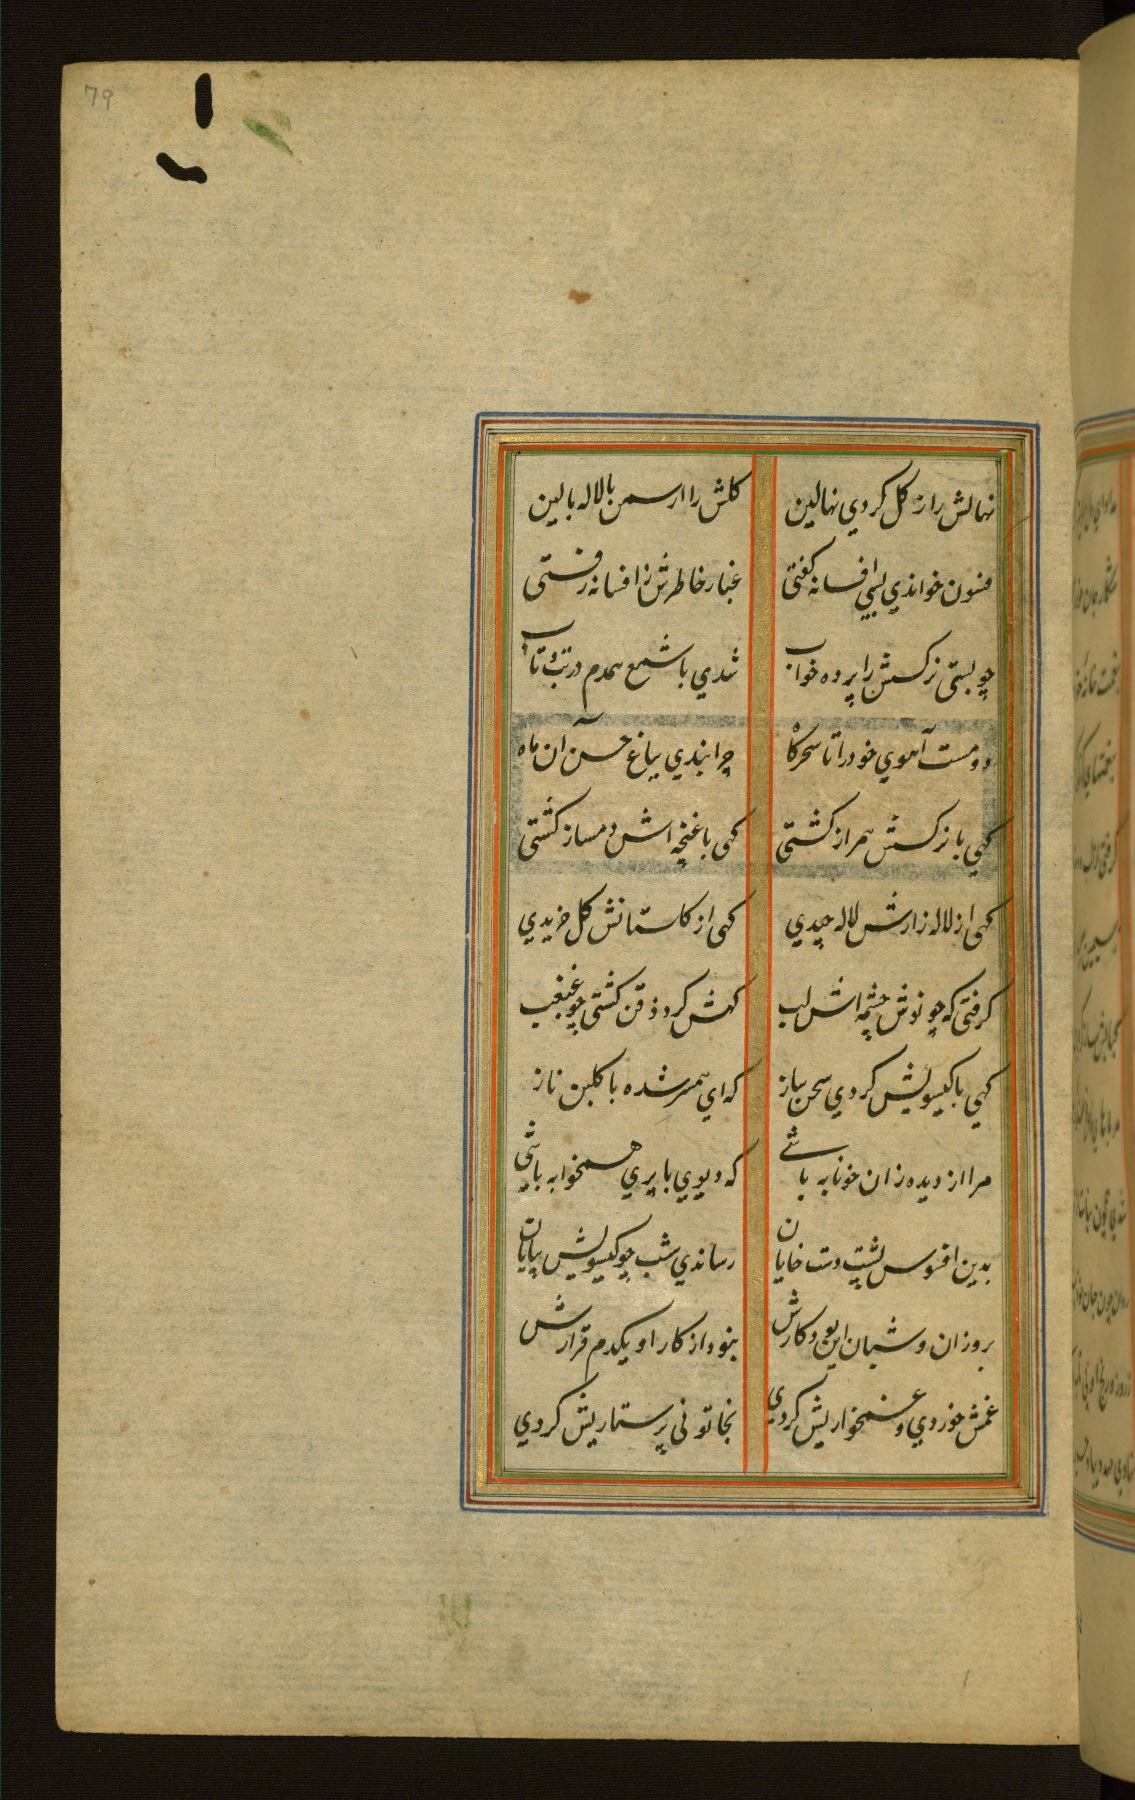 79
نهالش را ز گل کردي نهالین
کلش را از سمن با لاله بالین
فسون خواندي بسی افسانه کفتی
غبار خاطرش ز افسانه رفتی
چو بستی نرکسش را پرده خواب
شدي با شمع همدم در تب و تاب
دو مست آهوي خود را تا سحرکاه
چرانیدي بباغ حسن آن ماه
کهي با نرکسش همراز کشتی
کهی با غنچه اش دمساز کشتی
کهی از لاله زارش لاله چیدي
کهی از کلستانش کل خریدي
کرفتی که چو نوش چشمه اش لب
کهش کرد ذقن کشتی چو غبغب
کهي با کیسویش کردي سخن ساز
که اي همسر شده با کلبن ناز
مرا از دیده زان خونابه باشی
که دیوي با پري همخوابه باشي
بدین افسوس پشت دست خایان
رساندي شب چو کیسویش بپایان
بروزان و شبان این بود کارش
نبود از کار او یکدم قرارش
غمش خوردي و غمخواریش کردي
بخاتونی پرستاریش کردي